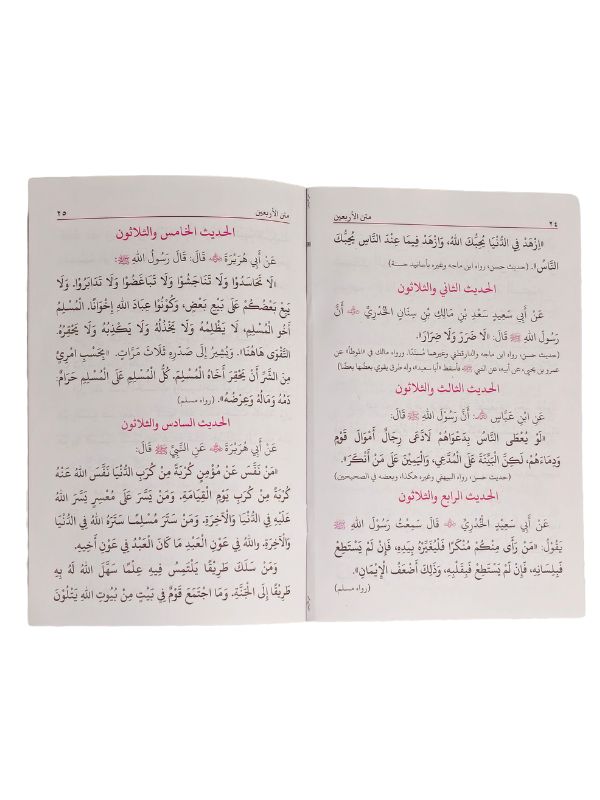 ٢٤ متن الأربعين
«ازْهَدْ فِي الدُّنْيَا يُحِبُّكَ اللهُ، وَازْهَدْ فِيمَا عِنْدَ النَّاسِ يُحِبُّكَ
النَّاسُ». (حديث حسن، رواه ابن ماجه وغيره بأسانيد حسنة)
الحديث الثاني والثلاثون
عَنْ أَبِي سَعِيدٍ سَعْدِ بْنِ مَالِكِ بْنِ سِنَانٍ الْخُدْرِيِّ ﵁ أَنَّ
رَسُولَ اللهِ ﷺ قَالَ: «لَا ضَرَرَ وَلَا ضِرَارَ».
(حديث حسن، رواه ابن ماجه والدارقطني وغيرهما مُسنَدًا. ورواه مالك في «الموطأ» عن
عمرو بن يحيى، عن أبيه، عن النبي ﷺ فأسقط «أبا سعيد» وله طرق يقوي بعضها بعضًا)
الحديث الثالث والثلاثون
عَنِ ابْنِ عَبَّاسٍ ﵄: أَنَّ رَسُولَ اللهِ ﷺ قَالَ:
«لَوْ يُعْطَى النَّاسُ بِدَعْوَاهُمْ لَادَّعَى رِجَالٌ أَمْوَالَ قَوْمٍ
وَدِمَاءَهُمْ، لَكِنِ الْبَيِّنَةُ عَلَى الْمُدَّعِي، وَالْيَمِينُ عَلَى مَنْ أَنْكَرَ».
(حديث حسن، رواه البيهقي وغيره هكذا، وبعضه في الصحيحين)
الحديث الرابع والثلاثون
عَنْ أَبِي سَعِيدٍ الْخُدْرِيِّ ﵁ قَالَ سَمِعْتُ رَسُولَ اللهِ ﷺ
يَقُولُ: «مَنْ رَأَى مِنْكُمْ مُنْكَرًا فَلْيُغَيِّرْهُ بِيَدِهِ، فَإِنْ لَمْ يَسْتَطِعْ
فَبِلِسَانِهِ، فَإِنْ لَمْ يَسْتَطِعْ فَبِقَلْبِهِ، وَذَلِكَ أَضْعَفُ الْإِيمَانِ».
(رواه مسلم)
متن الأربعين ٢٥
الحديث الخامس والثلاثون
عَنْ أَبِي هُرَيْرَةَ ﵁ قَالَ: قَالَ رَسُولُ اللهِ ﷺ:
«لَا تَحَاسَدُوا وَلَا تَنَاجَشُوا وَلَا تَبَاغَضُوا وَلَا تَدَابَرُوا. وَلَا
يَبِعْ بَعْضُكُمْ عَلَى بَيْعِ بَعْضٍ، وَكُونُوا عِبَادَ اللهِ إِخْوَانًا. الْمُسْلِمُ
أَخُو الْمُسْلِمِ، لَا يَظْلِمُهُ وَلَا يَخْذُلُهُ وَلَا يَكْذِبُهُ وَلَا يَحْقِرُهُ.
التَّقْوَى هَاهُنَا». وَيُشِيرُ إِلَى صَدْرِهِ ثَلَاثَ مَرَّاتٍ. «بِحَسْبِ امْرِئٍ
مِنَ الشَّرِّ أَنْ يَحْقِرَ أَخَاهُ الْمُسْلِمَ. كُلُّ الْمُسْلِمِ عَلَى الْمُسْلِمِ حَرَامٌ:
دَمُهُ وَمَالُهُ وَعِرْضُهُ». (رواه مسلم)
الحديث السادس والثلاثون
عَنْ أَبِي هُرَيْرَةَ ﵁ عَنِ النَّبِيِّ ﷺ قَالَ:
«مَنْ نَفَّسَ عَنْ مُؤْمِنٍ كُرْبَةً مِنْ كُرَبِ الدُّنْيَا نَفَّسَ اللهُ عَنْهُ
كُرْبَةً مِنْ كُرَبِ يَوْمِ الْقِيَامَةِ. وَمَنْ يَسَّرَ عَلَى مُعْسِرٍ يَسَّرَ اللهُ
عَلَيْهِ فِي الدُّنْيَا وَالْآخِرَةِ. وَمَنْ سَتَرَ مُسْلِمًا سَتَرَهُ اللهُ فِي الدُّنْيَا
وَالْآخِرَةِ. وَاللهُ فِي عَوْنِ الْعَبْدِ مَا كَانَ الْعَبْدُ فِي عَوْنِ أَخِيهِ.
وَمَنْ سَلَكَ طَرِيقًا يَلْتَمِسُ فِيهِ عِلْمًا سَهَّلَ اللهُ لَهُ بِهِ
طَرِيقًا إِلَى الْجَنَّةِ. وَمَا اجْتَمَعَ قَوْمٌ فِي بَيْتٍ مِنْ بُيُوتِ اللهِ يَتْلُونَ